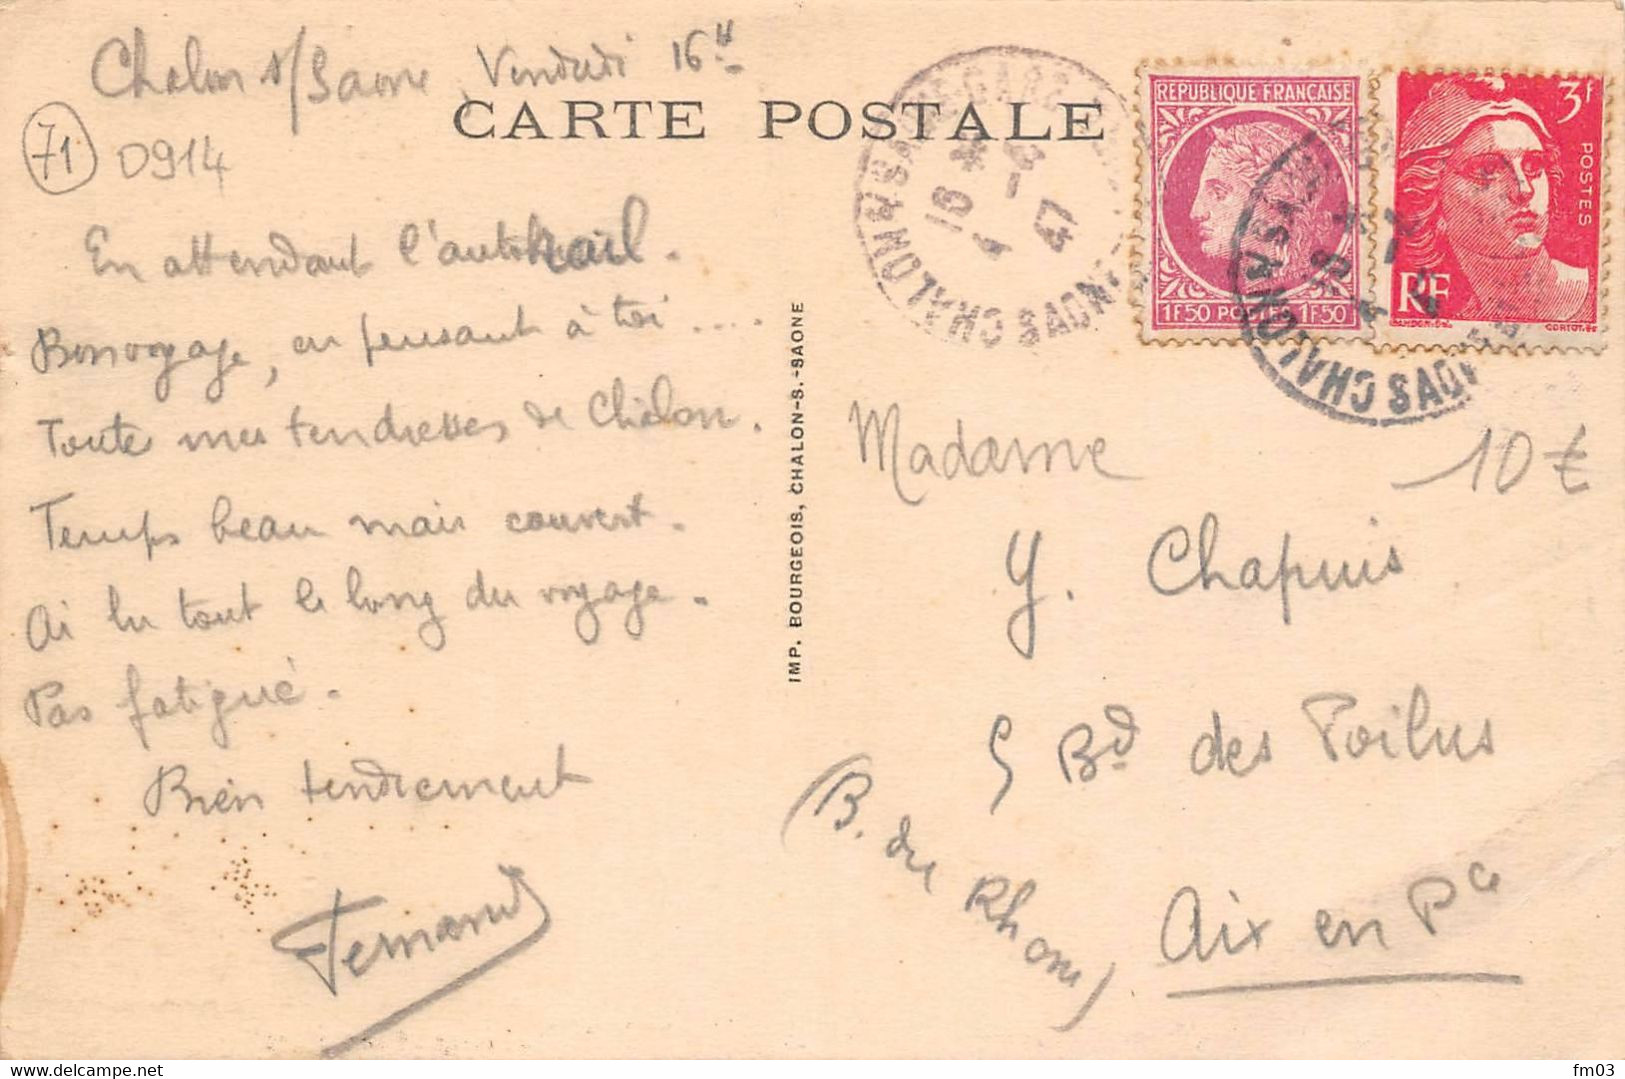 Chalon s/Saone Vendredi 16H
CARTE POSTALE
71
0914
En attendant l'autorail.
Bon voyage, en pensant à toi ....
Toutes mes tendresses de Chalon.
Temps beau mais couvert.
Ai lu tout le long du voyage.
Pas fatigué.
Bien tendrement
Fernand
IMP. BOURGEOIS, CHALON-S.-SAONE
CHALON S/SAONE-GARE
16 *
4 -4
47
SAONE
RÉPUBLIQUE FRANÇAISE
1F50 POSTES 1F50
3F
POSTES
RF
GANDON-DEL
CORTOT.SC
CHALON S/SAONE
SAONE
Madame
10 €
Y. Chapuis
5 Bd des Poilus
Aix en Pce
(B. du Rhone)
fm03